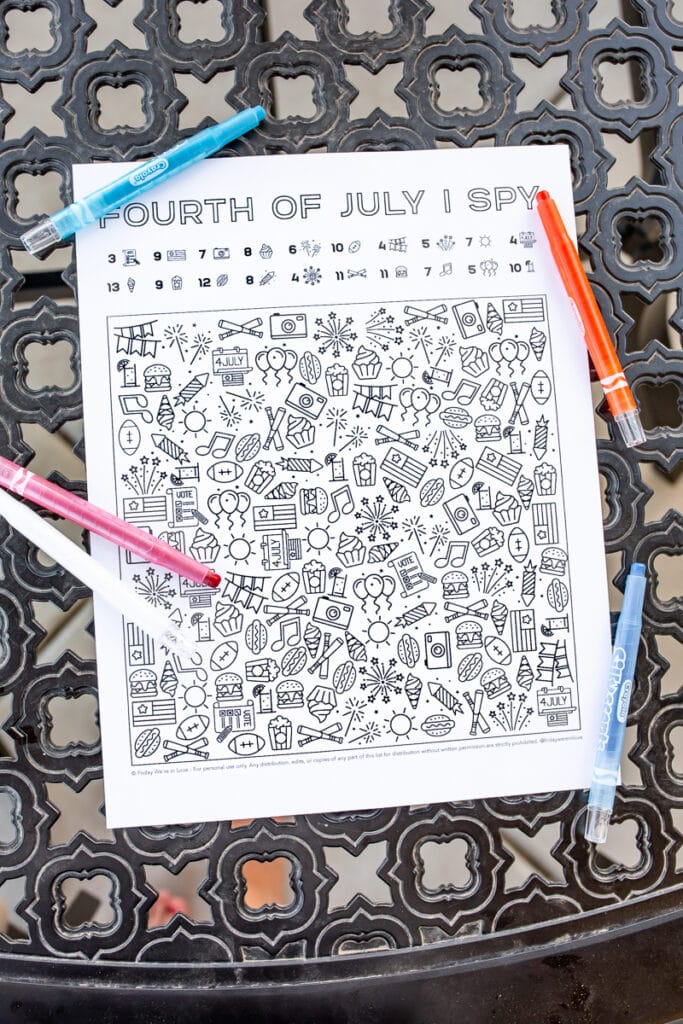 Crayola
FOURTH OF JULY I SPY
3 9 7 8 6 10 4 5 7 4
13 9 12 8 4 11 11 7 5 10
4 JULY
VOTE
4 JULY
4 JULY
4 JULY
© Friday We're in Love - For personal use only. Any distribution, edits, or copies of any part of this list for distribution without written permission are strictly prohibited. @fridaywereinlove